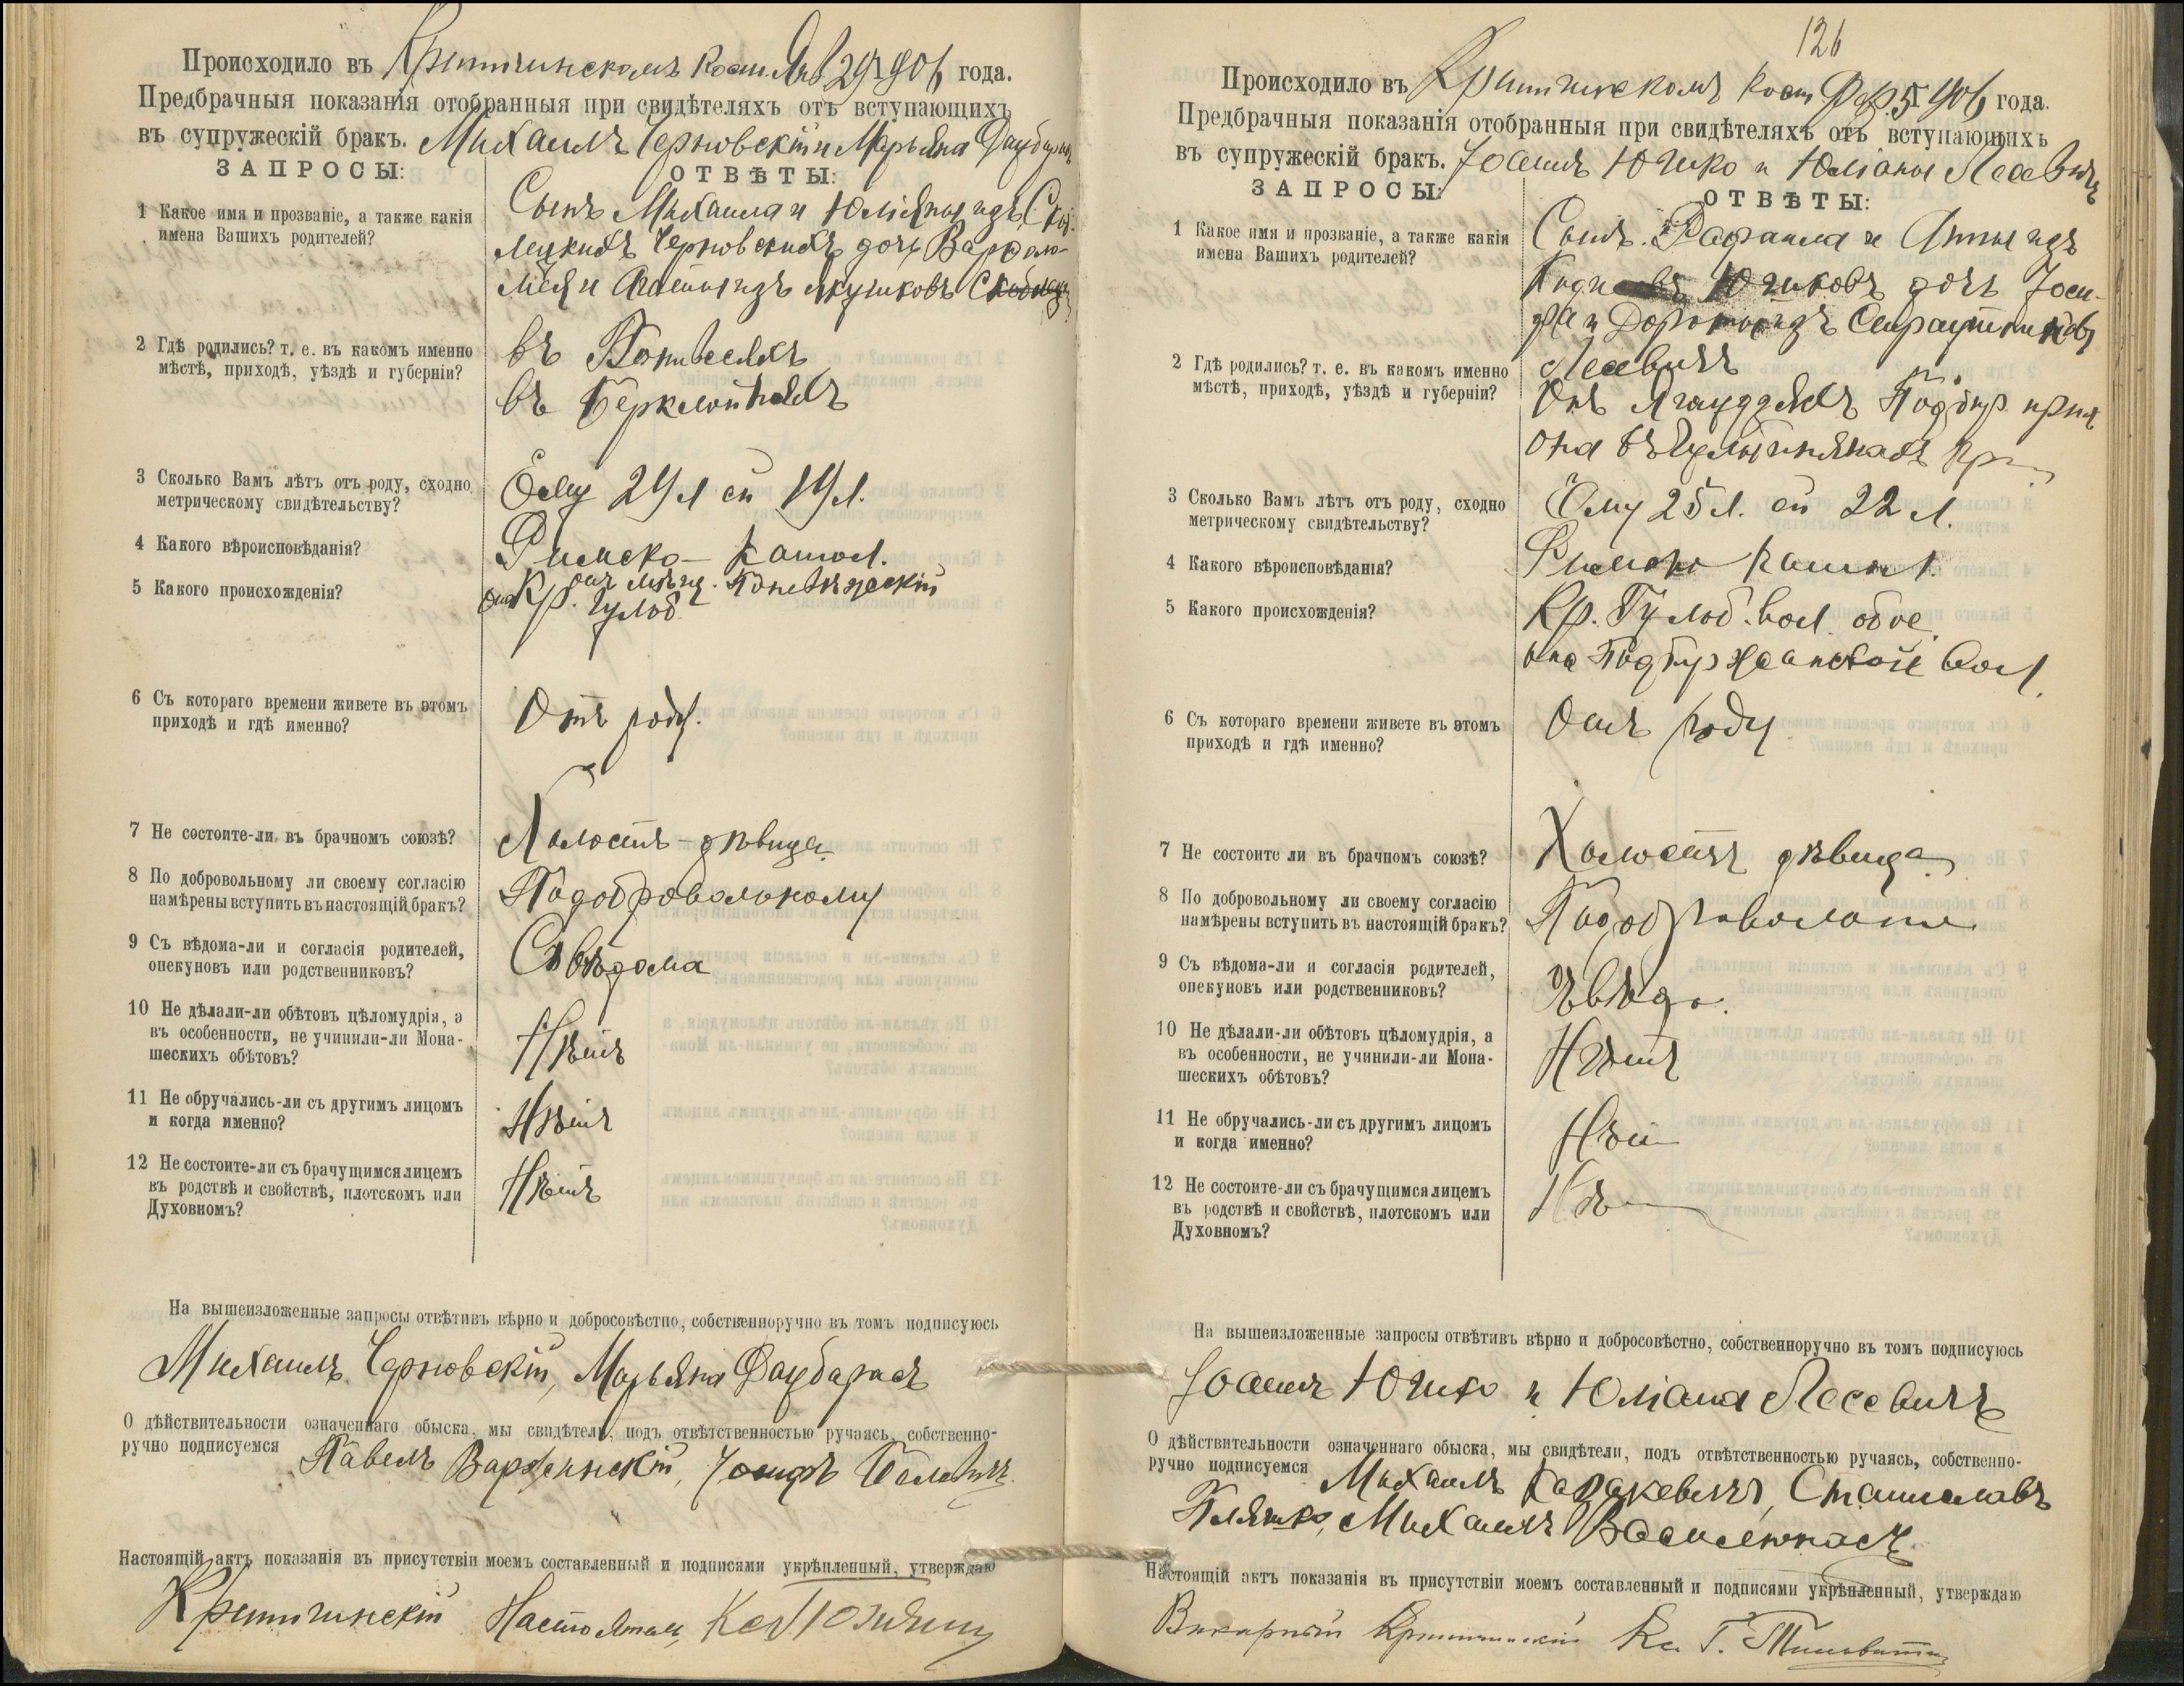 Происходило въ Критчинскомъ Кост. Янв 29 1906 года.
Предбрачныя показанія отобранныя при свидѣтеляхъ отъ вступающихъ
въ супружескій бракъ. Михаилъ Черновскій и Марьяна
ЗАПРОСЫ:
ОТВѢТЫ:
1 Какое имя и прозваніе, а также какія
имена Вашихъ родителей?
Сынъ Михаила и Юліяны изъ
Черновскихъ дочь Варфоло-
мея и изъ Якушковъ
2 Гдѣ родились? т. е. въ какомъ именно
мѣстѣ, приходѣ, уѣздѣ и губерніи?
въ
въ
3 Сколько Вамъ лѣтъ отъ роду, сходно
метрическому свидѣтельству?
Ему 24 л ей 19 л.
4 Какого вѣроисповѣданія?
Римско-Катол.
5 Какого происхожденія?
онъ мѣщ. Поневѣжскій
она Кр. Гулоб.
6 Съ котораго времени живете въ этомъ
приходѣ и гдѣ именно?
Отъ роду.
7 Не состоите-ли въ брачномъ союзѣ?
Холостъ - дѣвица
8 По добровольному ли своему согласію
намѣрены вступить въ настоящій бракъ?
По добровольному
9 Съ вѣдома-ли и согласія родителей,
опекуновъ или родственниковъ?
Съ вѣдома
10 Не дѣлали-ли обѣтовъ цѣломудрія, а
въ особенности, не учинили-ли Мона-
шескихъ обѣтовъ?
Нѣтъ
11 Не обручались-ли съ другимъ лицомъ
и когда именно?
Нѣтъ
12 Не состоите-ли съ брачущимся лицемъ
въ родствѣ и свойствѣ, плотскомъ или
Духовномъ?
Нѣтъ
На вышеизложенные запросы отвѣтивъ вѣрно и добросовѣстно, собственноручно въ томъ подписуюсь
Михаилъ Черновскій, Марьяна Даубарасъ
О дѣйствительности означеннаго обыска, мы свидѣтели, подъ отвѣтственностью ручаясь, собственно-
ручно подписуемся Павелъ Іосифъ
Настоящій актъ показанія въ присутствіи моемъ составленный и подписями укрѣпленный, утверждаю
Критчинскій Настоятель
126
Происходило въ Критчинскомъ Кост Фев. 5 1906 года.
Предбрачныя показанія отобранныя при свидѣтеляхъ отъ вступающихъ
въ супружескій бракъ. Юшко и Юліаны Лесевичъ
ЗАПРОСЫ:
ОТВѢТЫ:
1 Какое имя и прозваніе, а также какія
имена Вашихъ родителей?
Сынъ Рафаила и Анны изъ
Юшковъ дочь Іоси-
фа и изъ
Лесевичъ
2 Гдѣ родились? т. е. въ какомъ именно
мѣстѣ, приходѣ, уѣздѣ и губерніи?
Онъ
она въ
3 Сколько Вамъ лѣтъ отъ роду, сходно
метрическому свидѣтельству?
Ему 25 л. ей 22 л.
4 Какого вѣроисповѣданія?
Римско катол.
5 Какого происхожденія?
Кр. Гулоб. вол. обое
она Подбиржанской вол.
6 Съ котораго времени живете въ этомъ
приходѣ и гдѣ именно?
Отъ роду
7 Не состоите ли въ брачномъ союзѣ?
Холостъ дѣвица
8 По добровольному ли своему согласію
намѣрены вступить въ настоящій бракъ?
9 Съ вѣдома-ли и согласія родителей,
опекуновъ или родственниковъ?
10 Не дѣлали-ли обѣтовъ цѣломудрія, а
въ особенности, не учинили-ли Мона-
шескихъ обѣтовъ?
Нѣтъ
11 Не обручались-ли съ другимъ лицомъ
и когда именно?
Нѣт
12 Не состоите-ли съ брачущимся лицемъ
въ родствѣ и свойствѣ, плотскомъ или
Духовномъ?
Нѣ
На вышеизложенные запросы отвѣтивъ вѣрно и добросовѣстно, собственноручно въ томъ подписуюсь
Юшко и Юліана Лесевичъ
О дѣйствительности означеннаго обыска, мы свидѣтели, подъ отвѣтственностью ручаясь, собственно-
ручно подписуемся Михаилъ Станиславъ
Михаилъ
Настоящій актъ показанія въ присутствіи моемъ составленный и подписями укрѣпленный, утверждаю
Викарный Критчинскій Кс. Г.